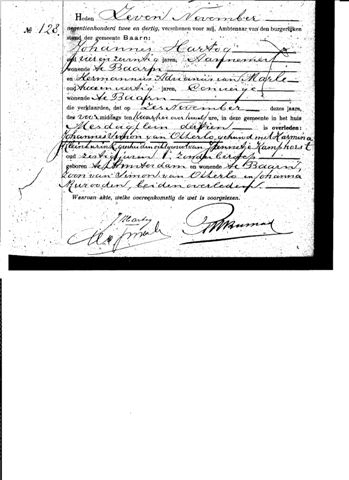 № 123
Heden Zeven November
negentienhonderd twee en dertig, verschenen voor mij, Ambtenaar van den burgerlijken
stand der gemeente Baarn:
Johannes Hartog
oud vier en zeventig jaren, Aannemer
wonende te Baarn
en Hermannus Adrianus van Marle
oud jaren, Concierge
wonende te Baarn
die verklaarden, dat op Zes November dezes jaars,
des voor middags ten ure, in deze gemeente in het huis
is overleden:
Johannes Simon van Otterlo, gehuwd met Harmina
Jannetje Kamphorst
oud zestig jaren,
geboren te Amsterdam en wonende te Baarn,
zoon van Simon van Otterlo en Johanna
beiden overleden
Waarvan akte, welke overeenkomstig de wet is voorgelezen.
J Hartog